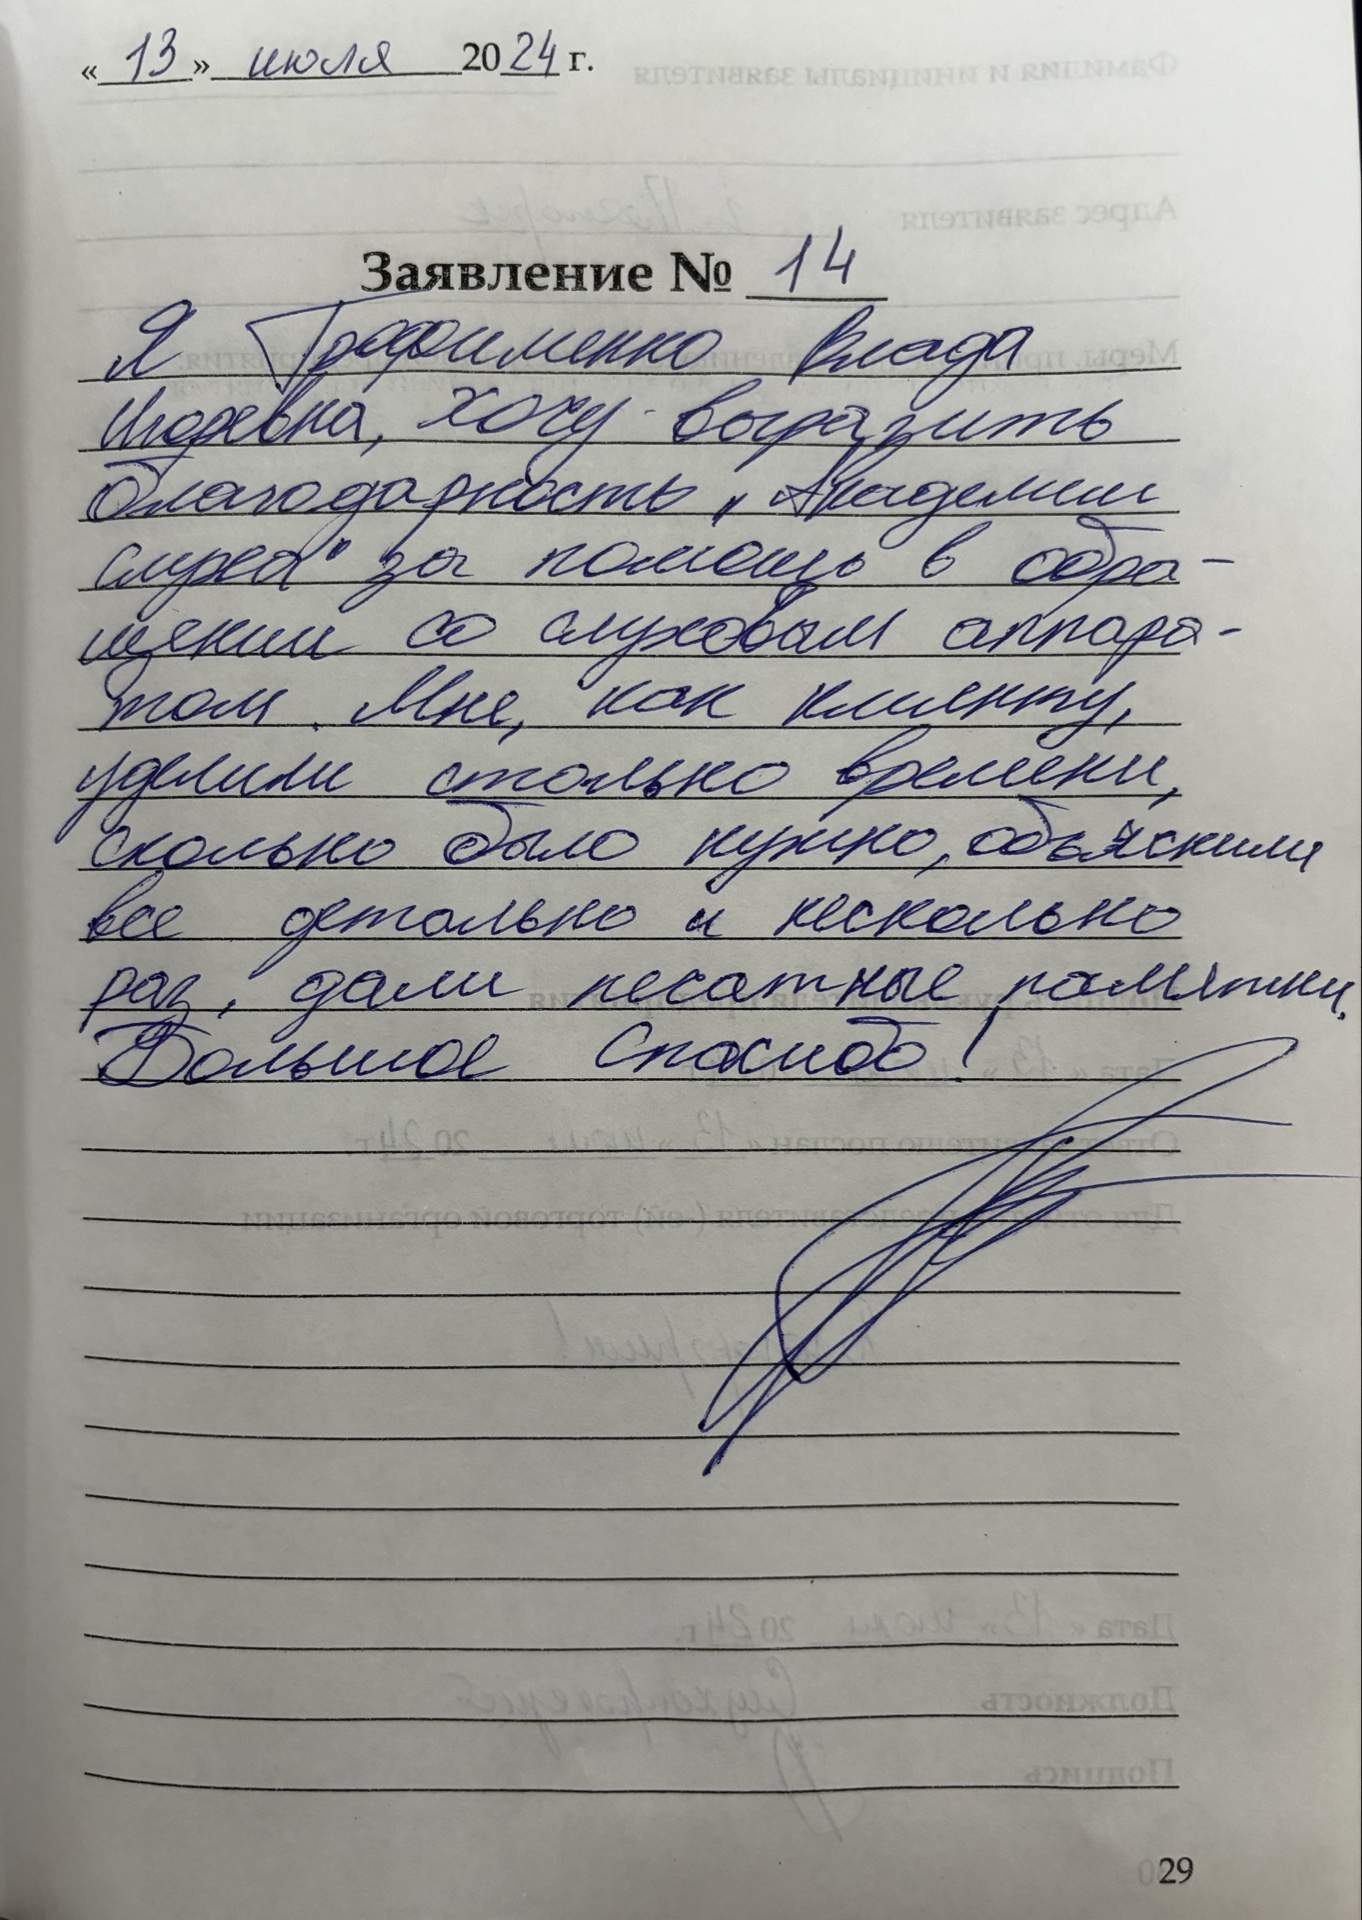 « 13 » июля 2024 г.
Заявление № 14
Я Трофименко Влада
Игоревна, хочу выразить
благодарность „Академии
слуха“ за помощь в обра-
щении со слуховым аппара-
том. Мне, как клиенту,
уделили столько времени,
сколько было нужно, объяснили
все детально и несколько
раз, дали печатные памятки.
Большое Спасибо!
29